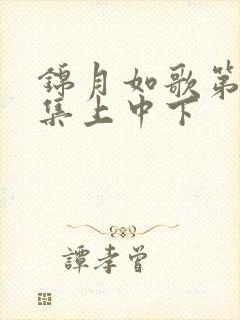 錦月如歌第
集上中下
譚孝曾